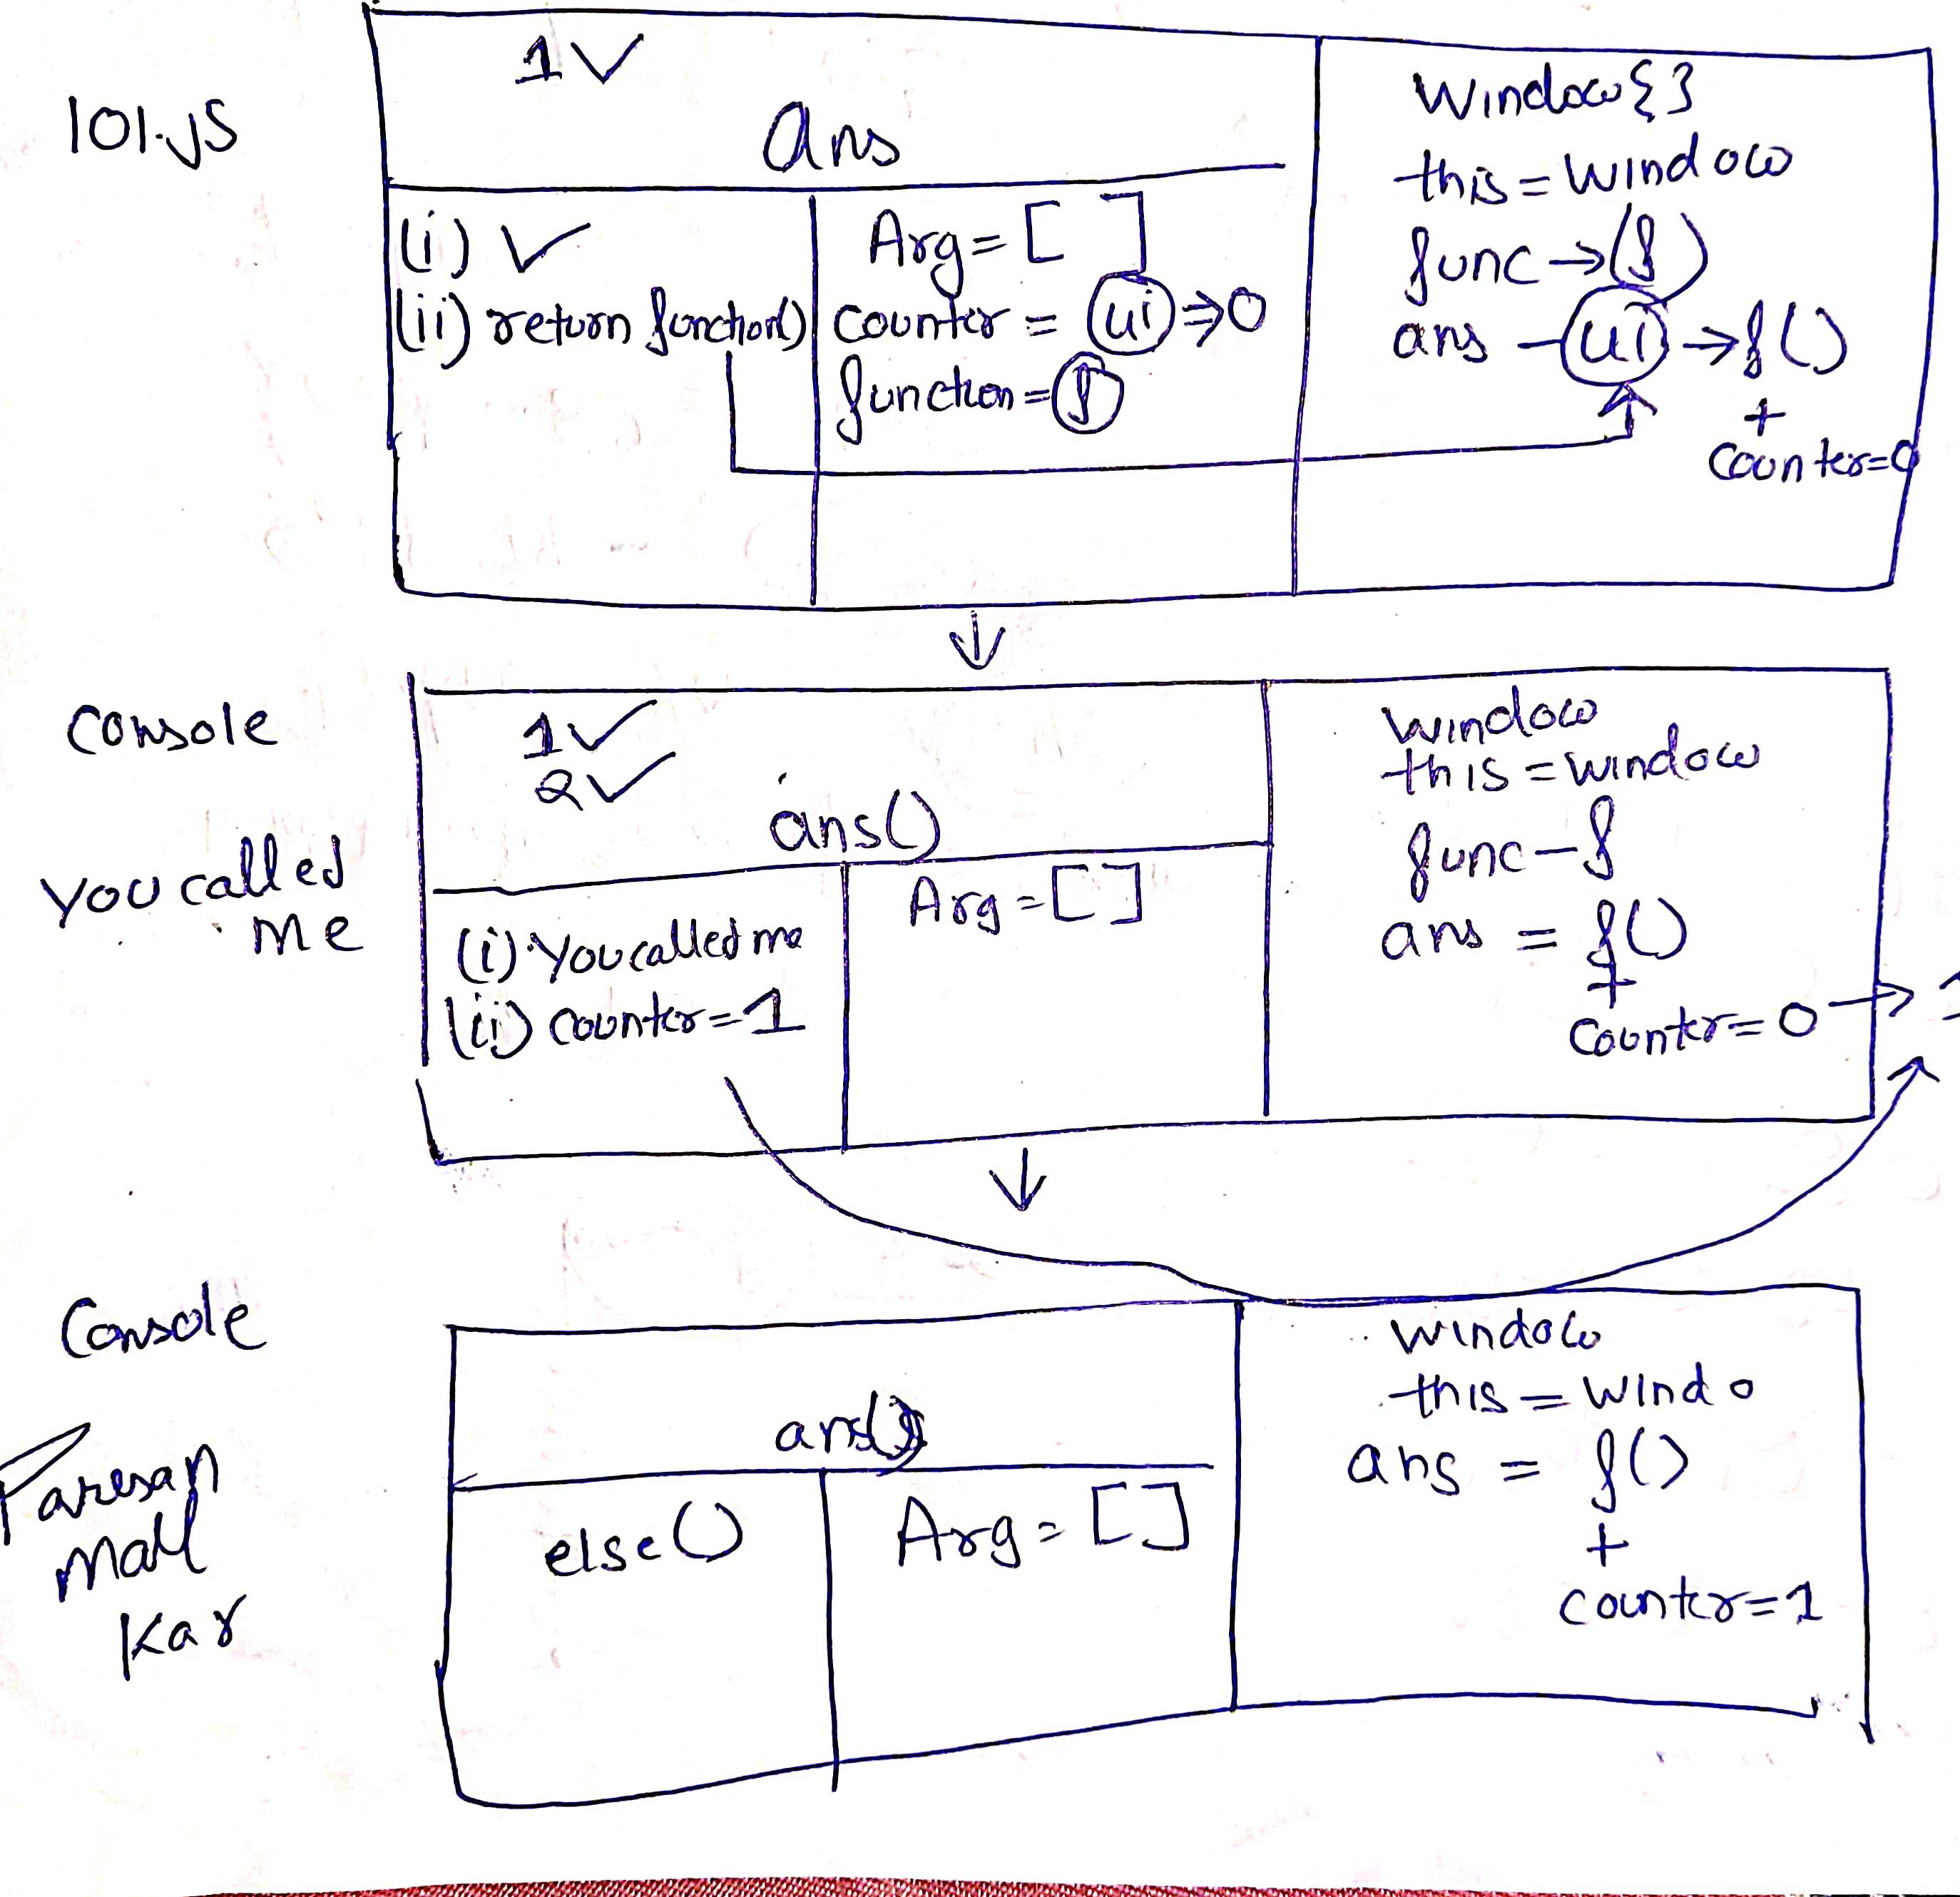 101.js
1✓
ans
(i) ✓
(ii) return function()
Arg= [ ]
counter = ui ⇒ 0
function = f
Window{}
this = window
func → (f)
ans - ui → f()
+
counter=0
↓
console
You called
me
1✓
2✓
ans()
(i) You called me
(ii) counter=1
Arg=[]
window
this = window
func - f
ans = f()
+
counter= 0 → 1
↓
Console
Paresan
mall
Kar
ans()
else()
Arg= []
window
this = windo
ans = f()
+
counter=1